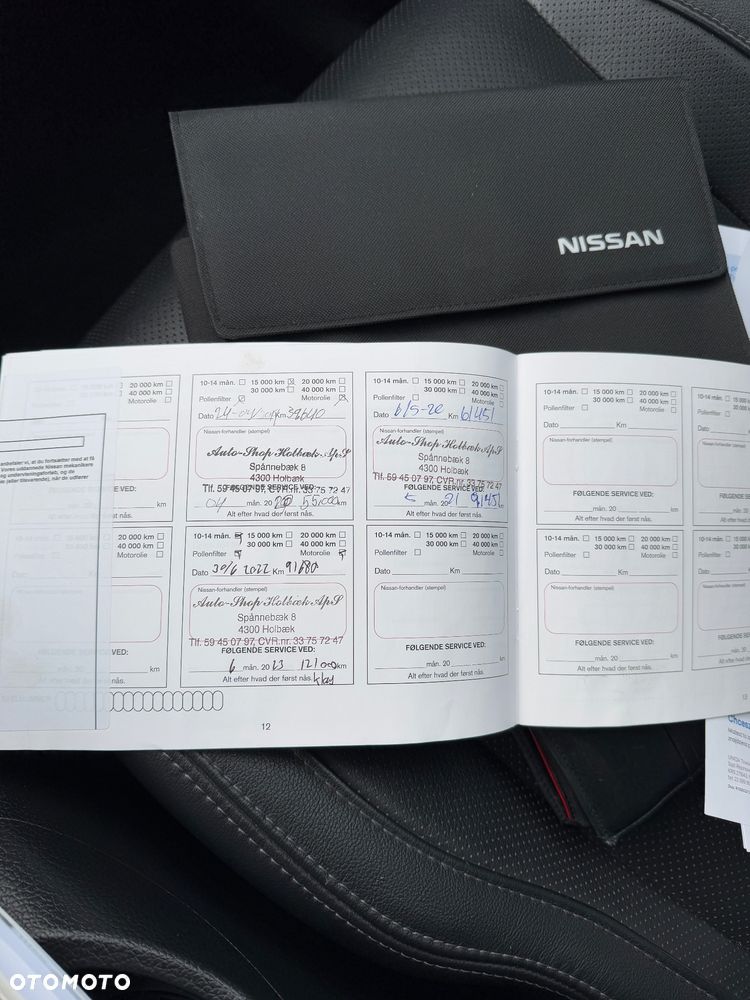 NISSAN
20 000 km
40 000 km
Motorolie
km
VED:
km
nås.
10-14 mån. 15 000 km 20 000 km
30 000 km 40 000 km
Pollenfilter Motorolie
Dato Km
Nissan-forhandler (stempel)
Auto-Shop Holbæk ApS
Spånnebæk 8
4300 Holbæk
Tlf. 59 45 07 97, CVR.nr. 33 75 72 47
FØLGENDE SERVICE VED:
04 mån. 20 20 55,000 km
Alt efter hvad der først nås.
10-14 mån. 15 000 km 20 000 km
30 000 km 40 000 km
Pollenfilter Motorolie
Dato 6/5-20 Km 61451
Nissan-forhandler (stempel)
Auto-Shop Holbæk ApS
Spånnebæk 8
4300 Holbæk
Tlf. 59 45 07 97, CVR.nr. 33 75 72 47
FØLGENDE SERVICE VED:
mån. 20 21
Alt efter hvad der først nås.
10-14 mån. 15 000 km 20 000 km
30 000 km 40 000 km
Pollenfilter Motorolie
Dato Km
Nissan-forhandler (stempel)
FØLGENDE SERVICE VED:
mån. 20 km
Alt efter hvad der først nås.
10-14 mån.
Pollenfilter
Dato
20 000 km
40 000 km
Motorolie
km
VED:
km
nås.
10-14 mån. 15 000 km 20 000 km
30 000 km 40 000 km
Pollenfilter Motorolie
Dato 30/6 2022 Km 91680
Nissan-forhandler (stempel)
Auto-Shop Holbæk ApS
Spånnebæk 8
4300 Holbæk
Tlf. 59 45 07 97, CVR.nr. 33 75 72 47
FØLGENDE SERVICE VED:
6 mån. 20 23 121000 km
Alt efter hvad der først nås.
10-14 mån. 15 000 km 20 000 km
30 000 km 40 000 km
Pollenfilter Motorolie
Dato Km
Nissan-forhandler (stempel)
FØLGENDE SERVICE VED:
mån. 20 km
Alt efter hvad der først nås.
10-14 mån. 15 000 km 20 000 km
30 000 km 40 000 km
Pollenfilter Motorolie
Dato Km
Nissan-forhandler (stempel)
FØLGENDE SERVICE VED:
mån. 20 km
Alt efter hvad der først nås.
10-14 mån.
Pollenfilter
Dato
12
13
OTOMOTO